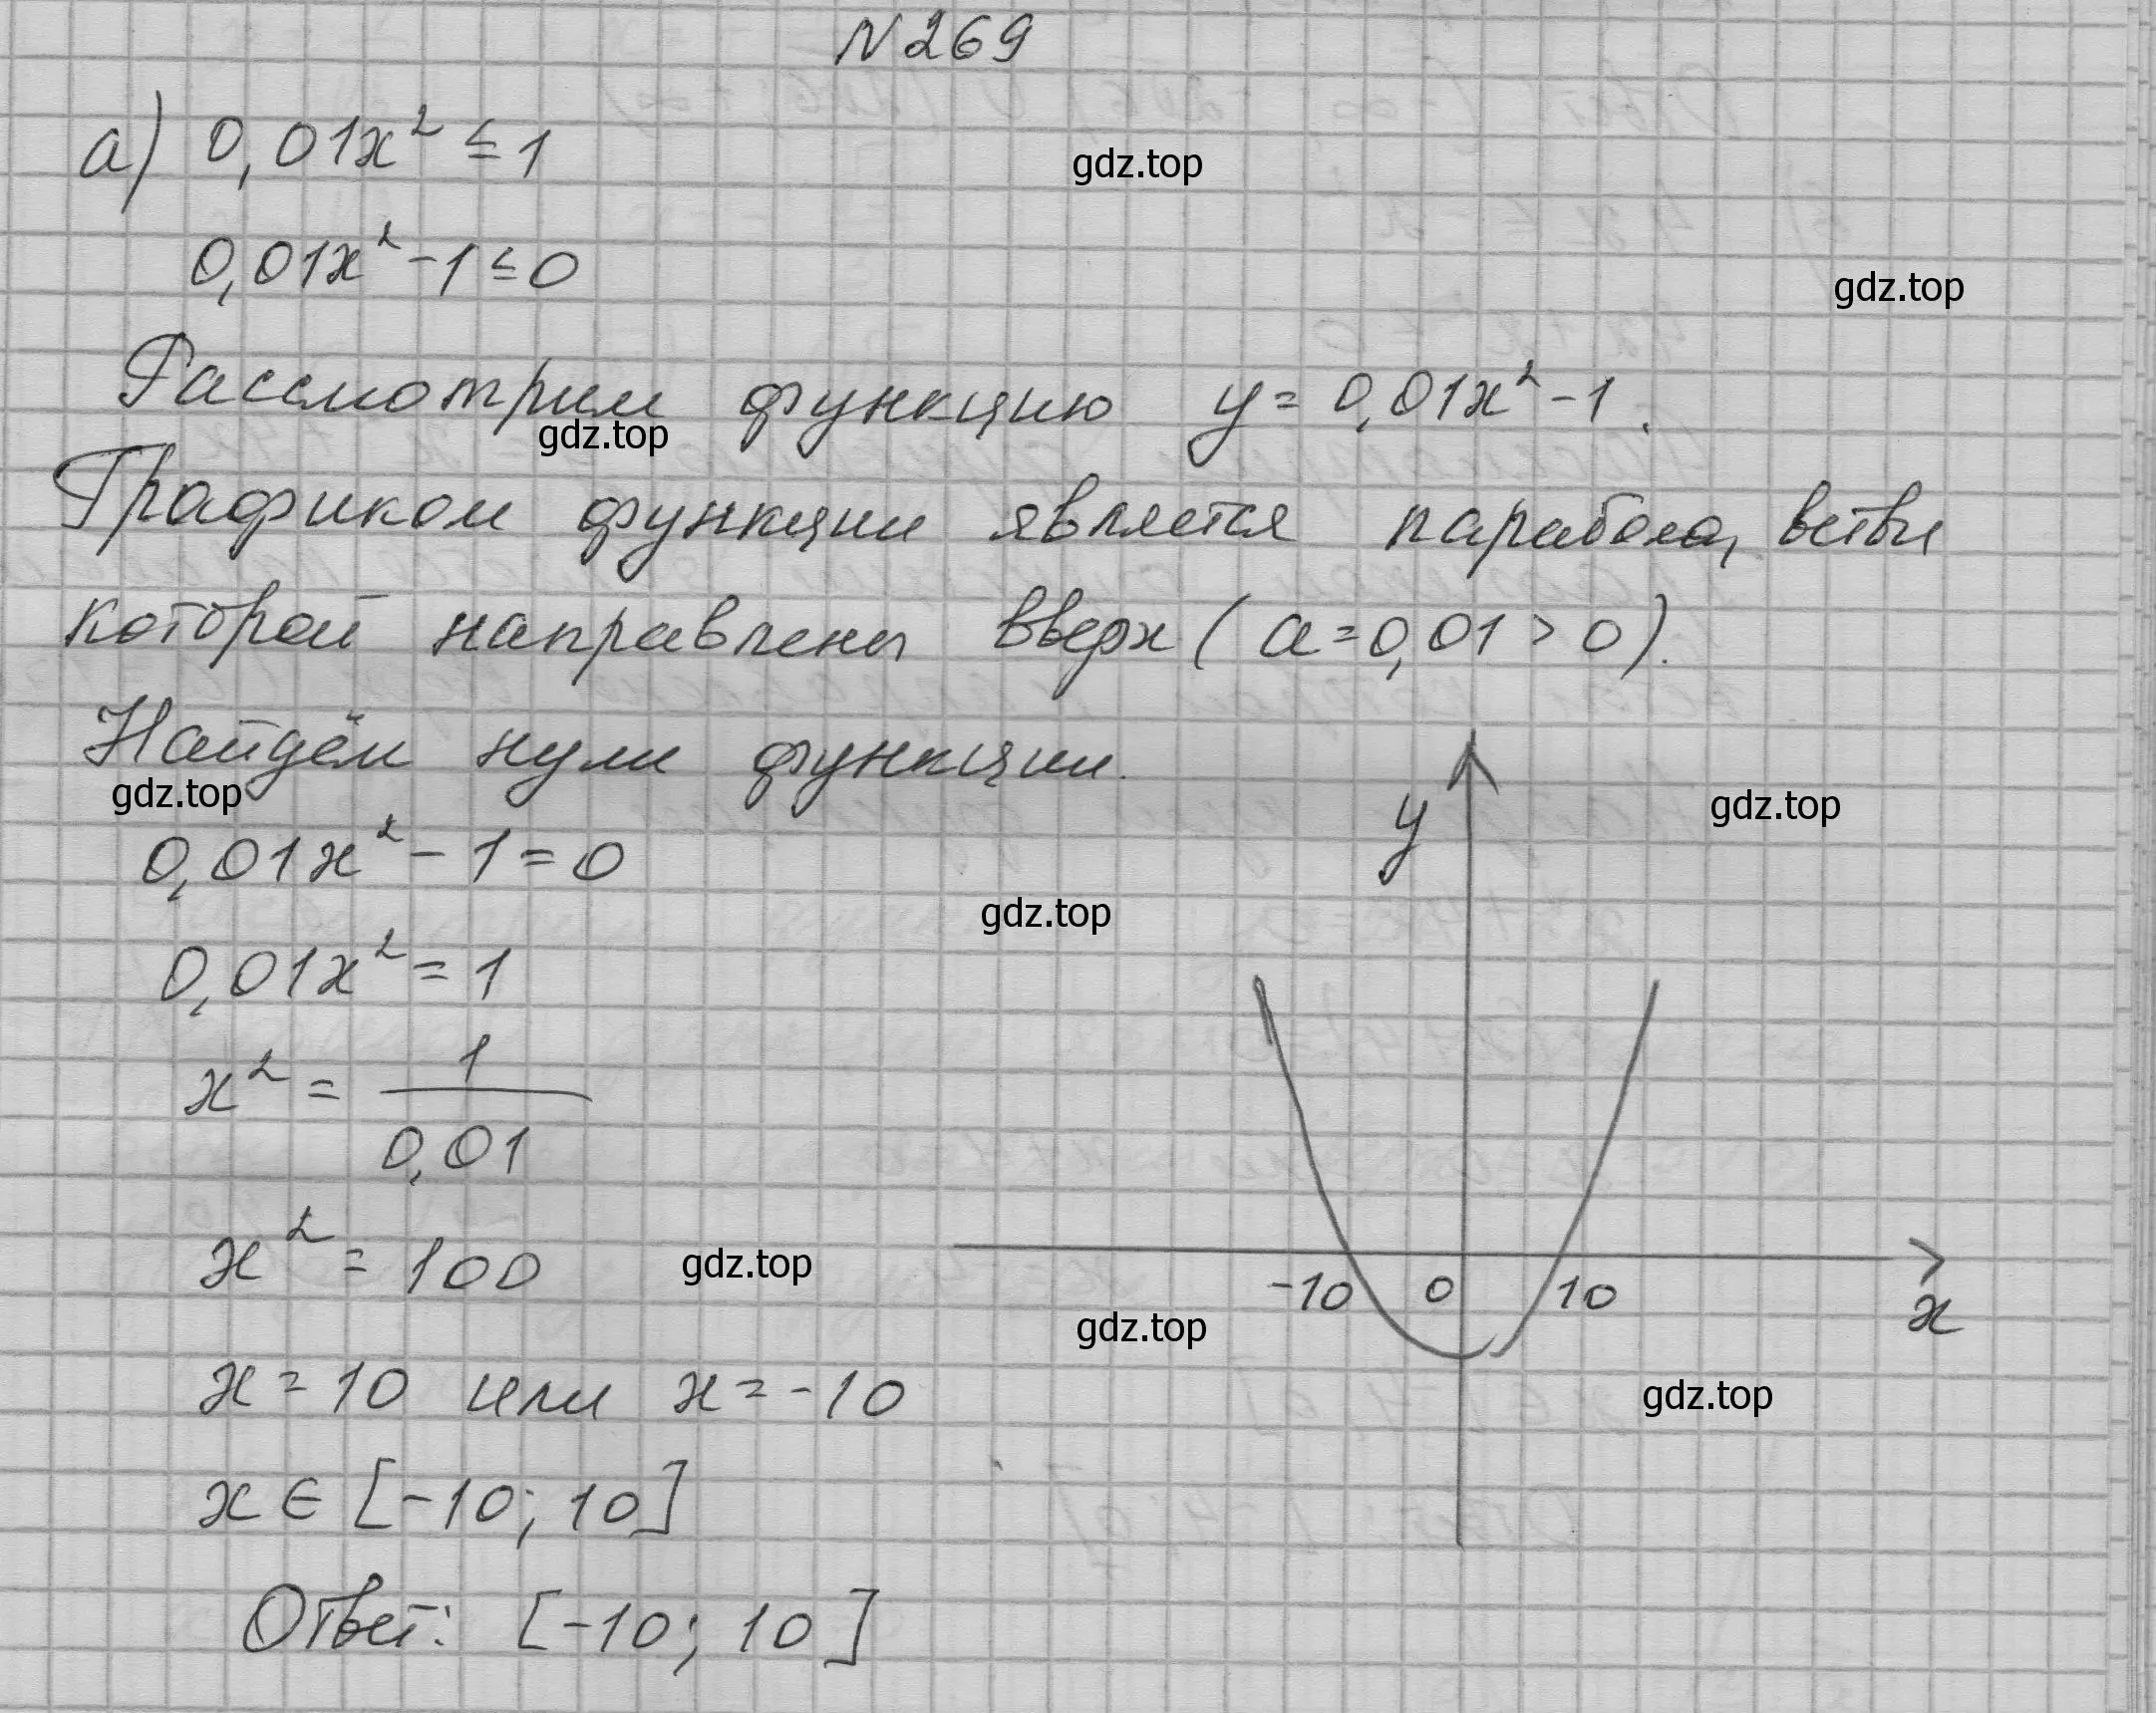 N 269
а) 0,01x² ≤ 1
gdz.top
0,01x² - 1 ≤ 0
gdz.top
Рассмотрим функцию y = 0,01x² - 1.
gdz.top
Графиком функции является парабола, ветви
которой направлены вверх (a = 0,01 > 0).
Найдём нули функции.
gdz.top
y
gdz.top
0,01x² - 1 = 0
gdz.top
0,01x² = 1
x² = 1/0,01
x² = 100
gdz.top
-10 0 10
x
gdz.top
x = 10 или x = -10
gdz.top
x ∈ [-10; 10]
Ответ: [-10; 10]